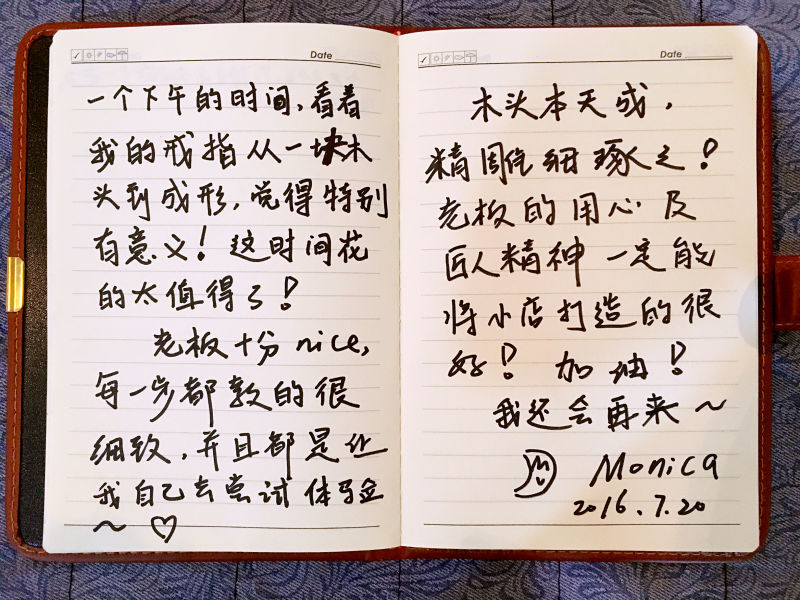 Date
一个下午的时间,看着
我的戒指从一块木
头到成形,觉得特别
有意义!这时间花
的太值得了!
老板十分nice,
每一步都教的很
细致,并且都是让
我自己去尝试体验
~ ♡
Date
木头本天成,
精雕细琢之!
老板的用心及
匠人精神一定能
将小店打造的很
好!加油!
我还会再来~
Monica
2016.7.20